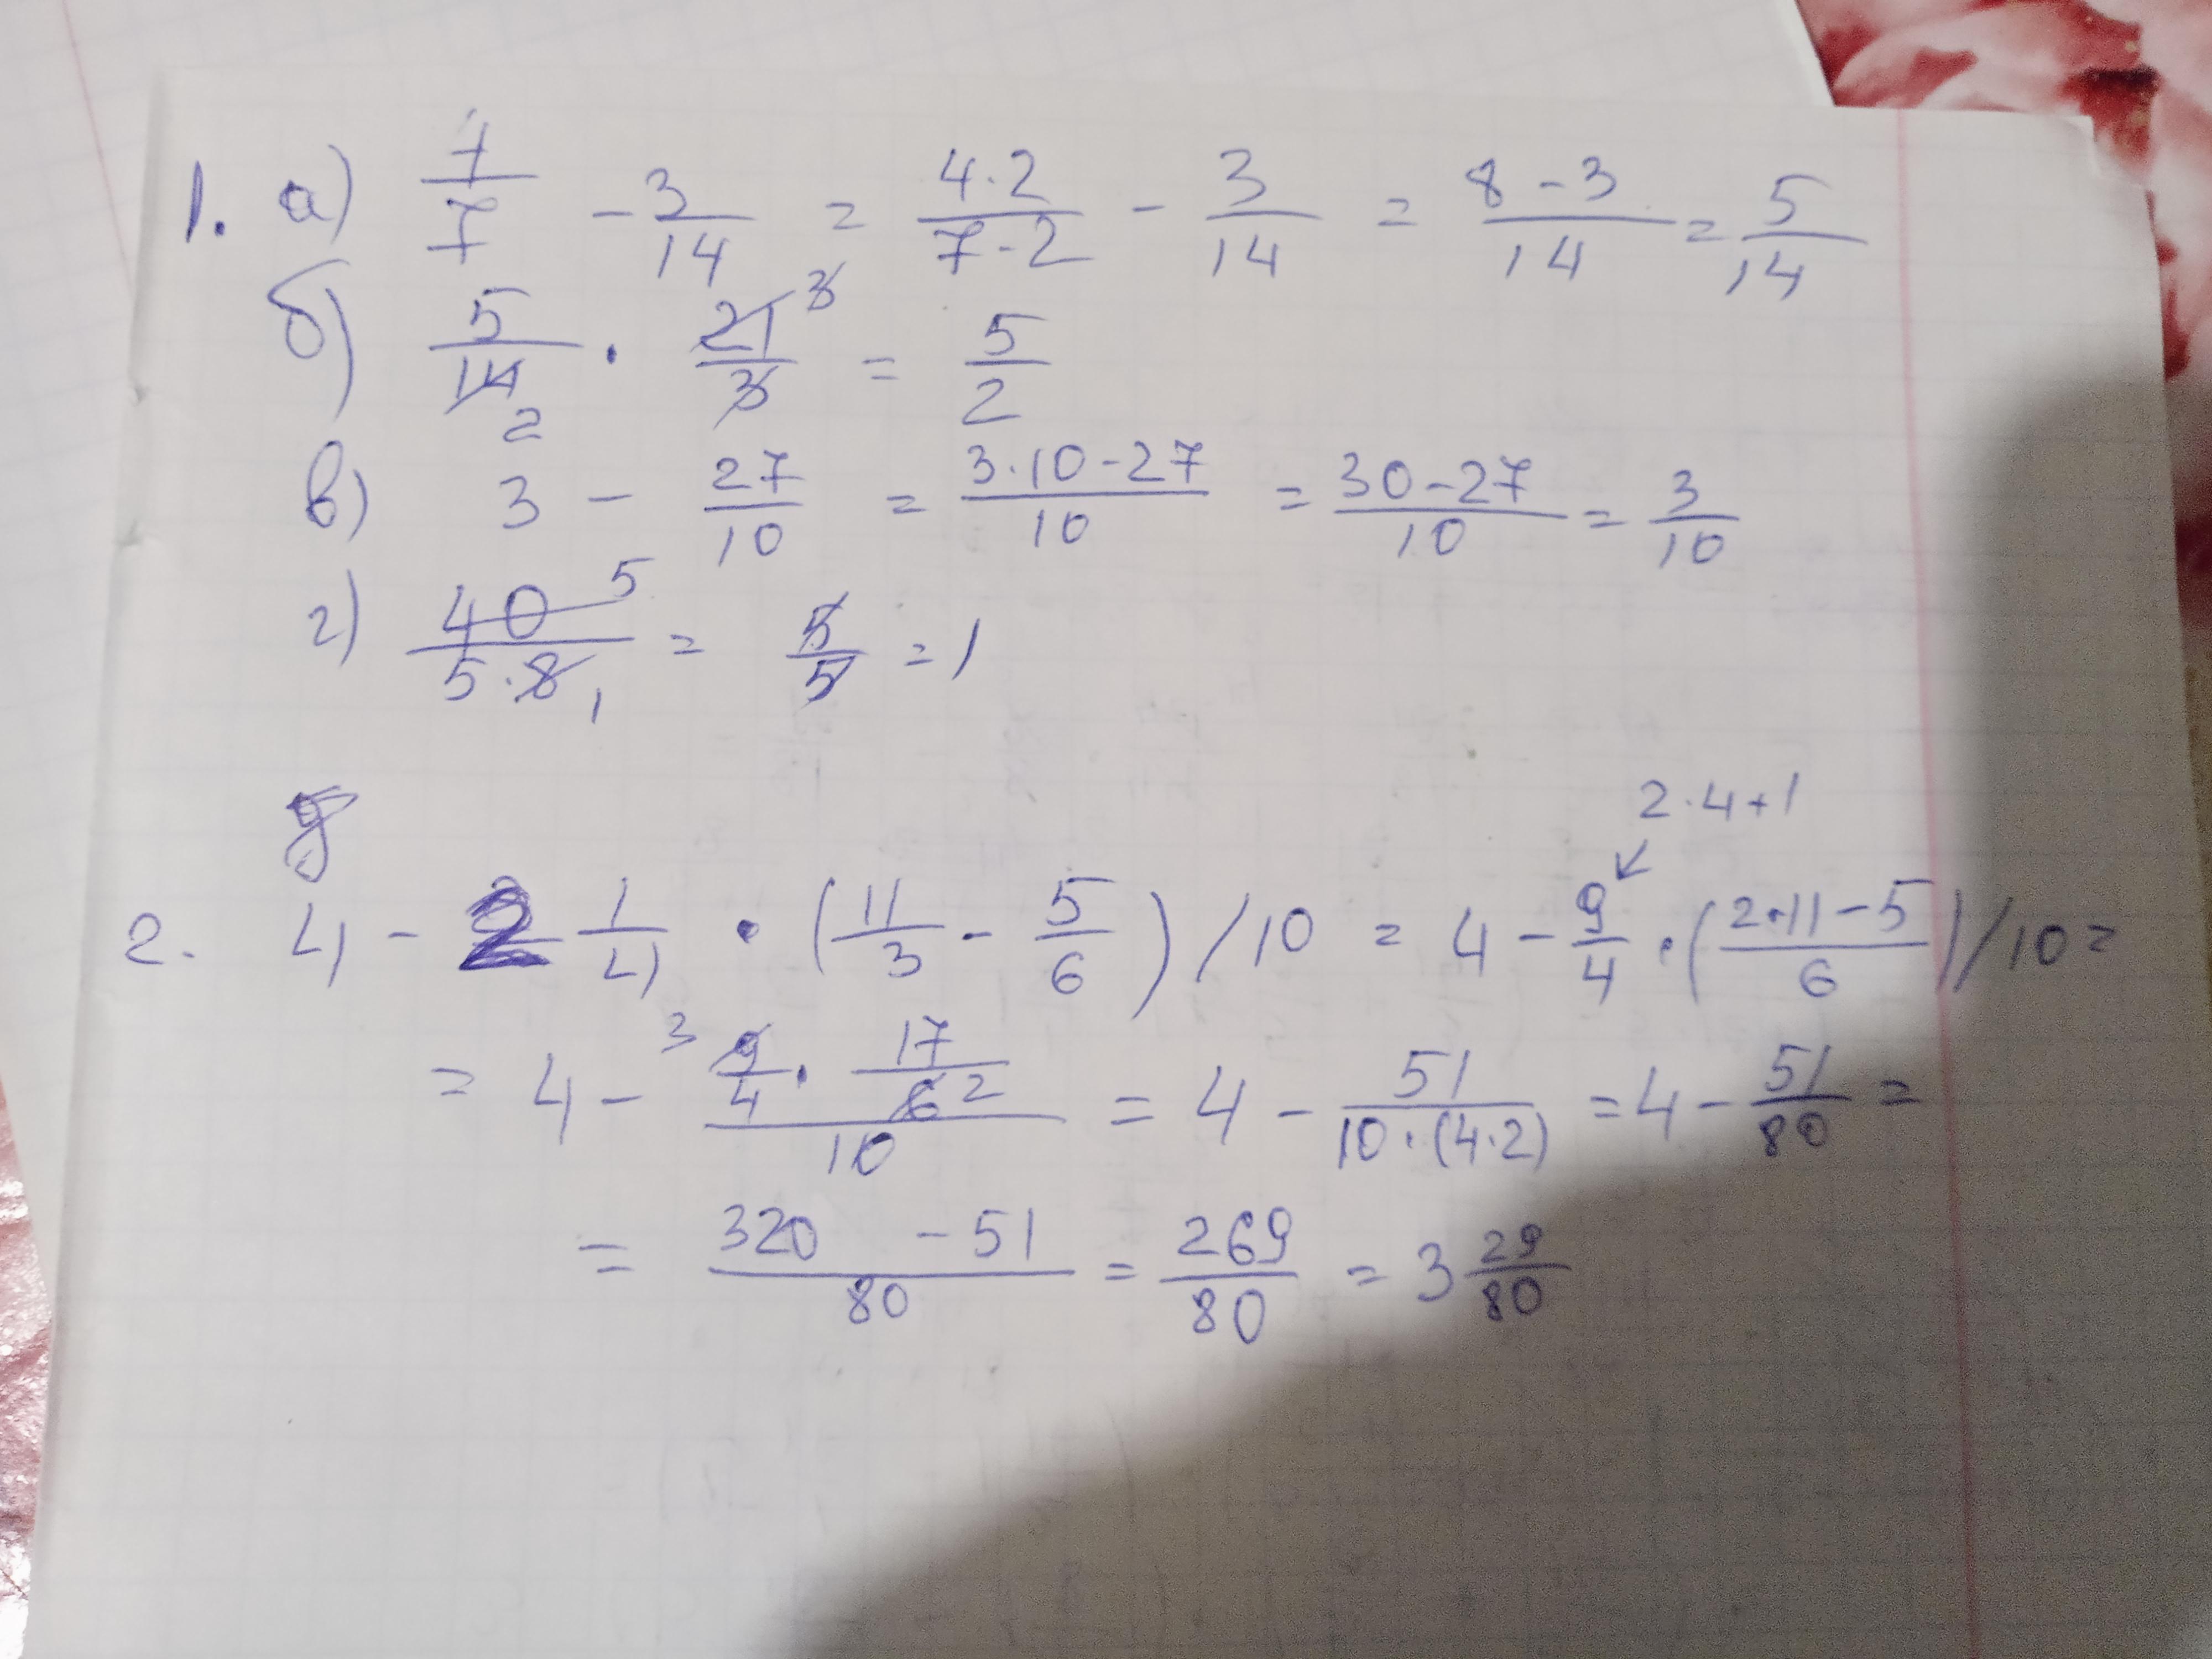 1. а) 4/7 - 3/14 = 4·2/7·2 - 3/14 = 8-3/14 = 5/14
б) 5/14 2 · 21 3/3 = 5/2
в) 3 - 27/10 = 3·10-27/10 = 30-27/10 = 3/10
г) 40 5/5·8 1 = 5/5 = 1
2·4+1
2. 4 - 2 1/4 · (11/3 - 5/6)/10 = 4 - 9/4 · (2·11-5/6)/10 =
= 4 - 3 9/4 · 17/6 2/10 = 4 - 51/10·(4·2) = 4 - 51/80 =
= 320 - 51/80 = 269/80 = 3 29/80